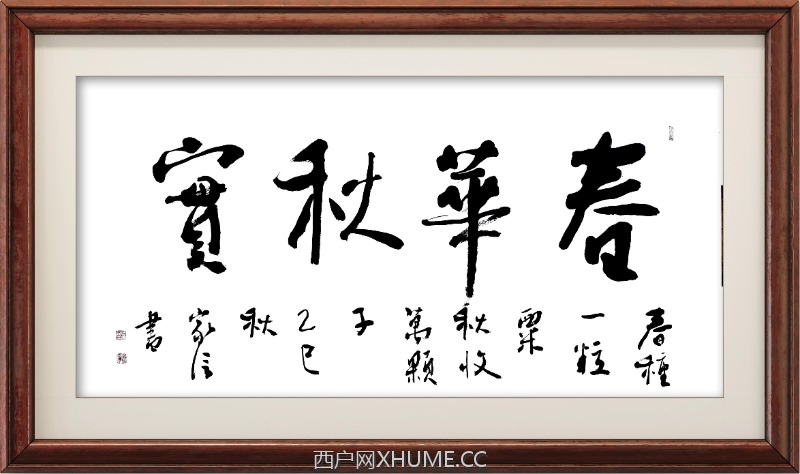 春華秋實
春種
一粒
粟
秋收
萬顆
子
乙巳
秋
家信
書
西户网XHUME.CC